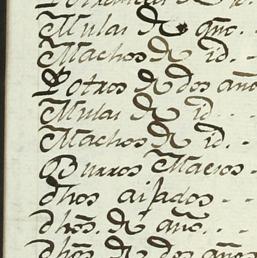 Mulas de año. -
Machos de id. -
Potros de dos año
Mulas de id. -
Machos de id. -
Burros Maeros -
dhos aifados - -
dhos. de año. - -
dhos. de dos años